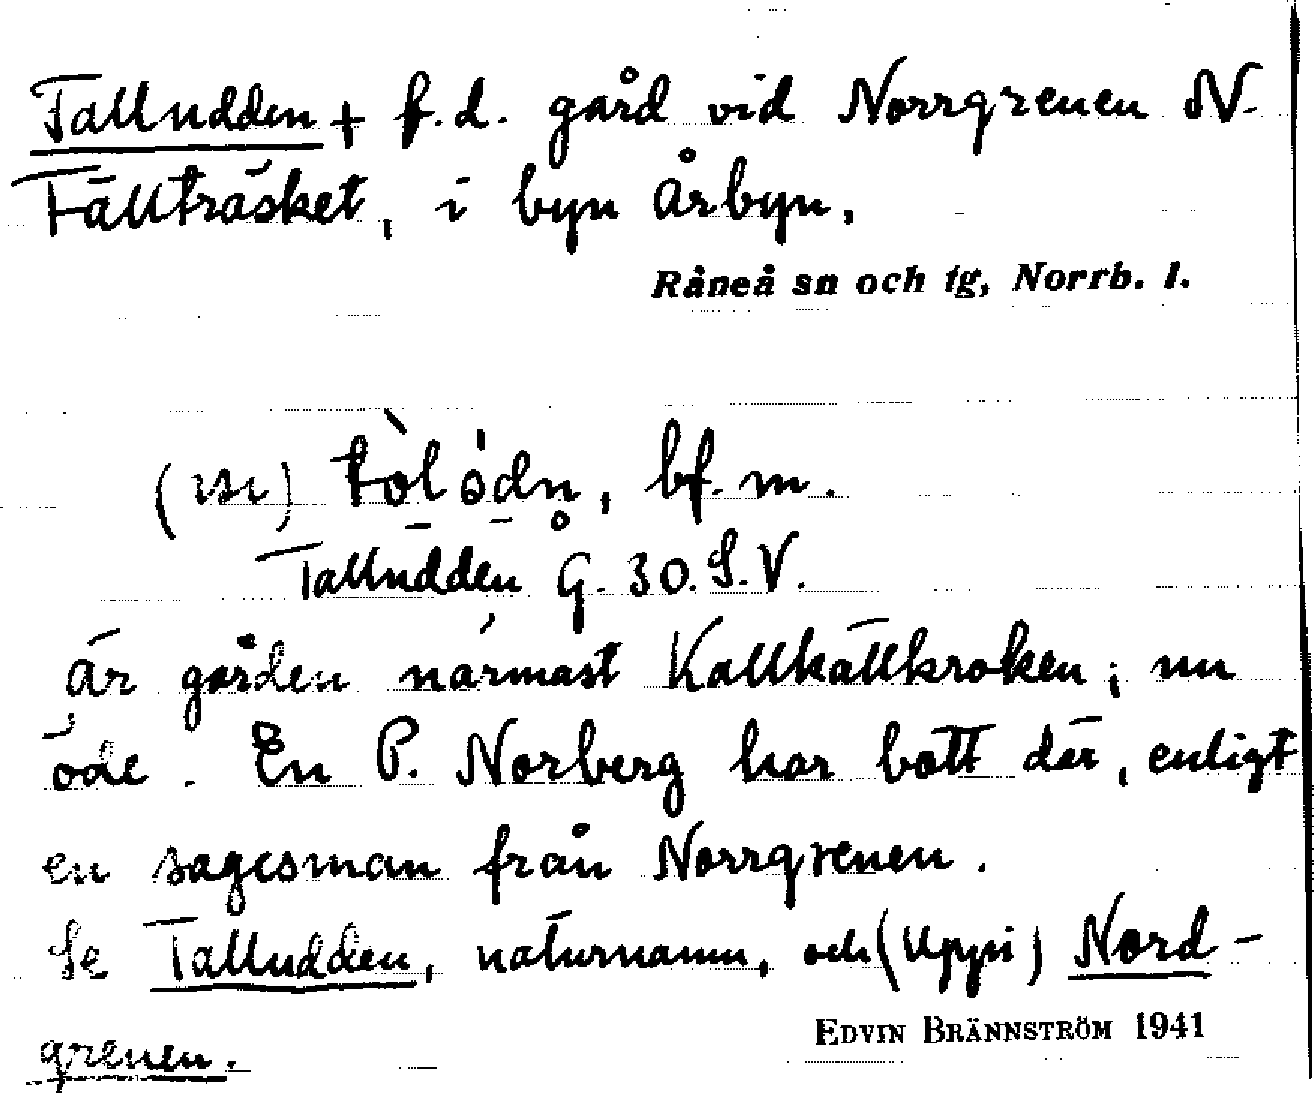 Talludden + f.d. gård vid Norrgrenen N.
Fällträsket, i byn Årbyn.
Råneå sn och tg, Norrb. l.
bf. m.
Talludden G. 30. S.V.
är gården närmast Kallkällkroken; nu
öde. En P. Norberg har bott där, enligt
en sagesman från Norrgrenen.
Se Talludden, naturnamn, och (Uppi) Nord-
grenen.
EDVIN BRÄNNSTRÖM 1941